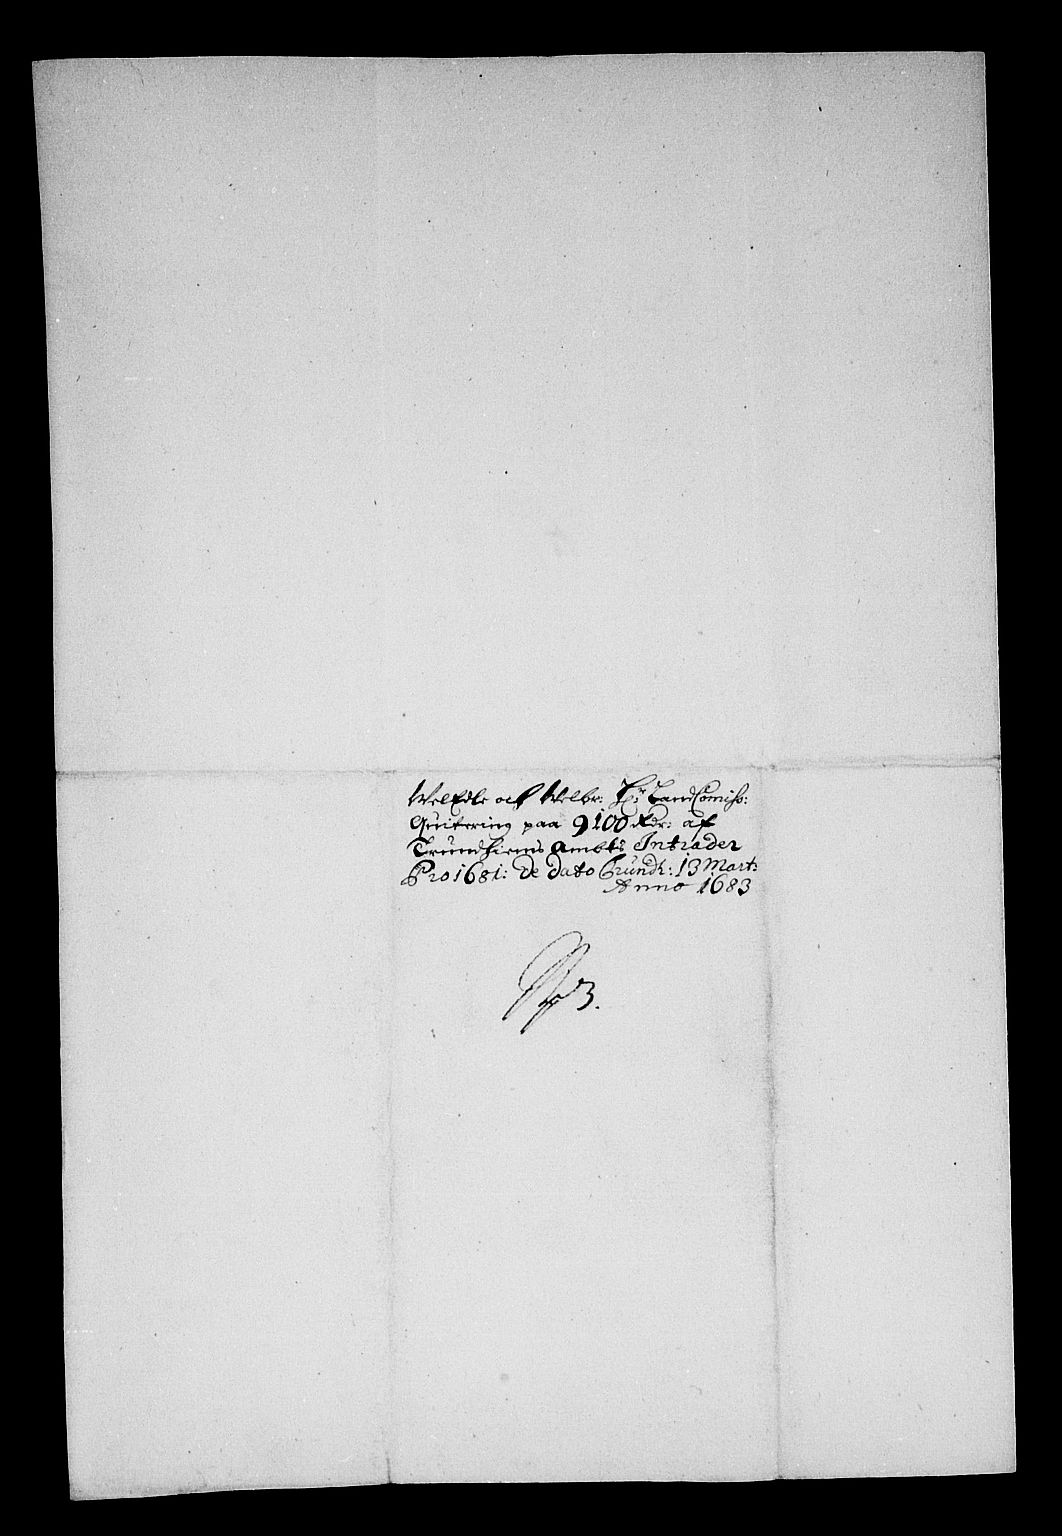 WelEdle och Welbr: Hr: LandComiss:
Quitering paa 9100 Rdr: af
Trundhiems ambts Intrader
Pro 1681: de dato Trundh: 13 Marti
Anno 1683